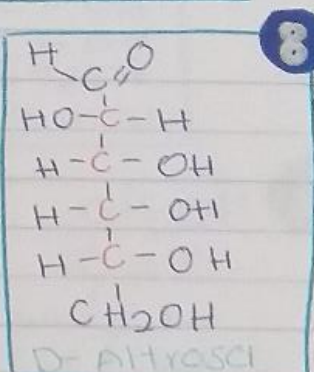 8
H O
C
HO-C-H
H-C-OH
H-C-OH
H-C-OH
CH2OH
D-Altrosa